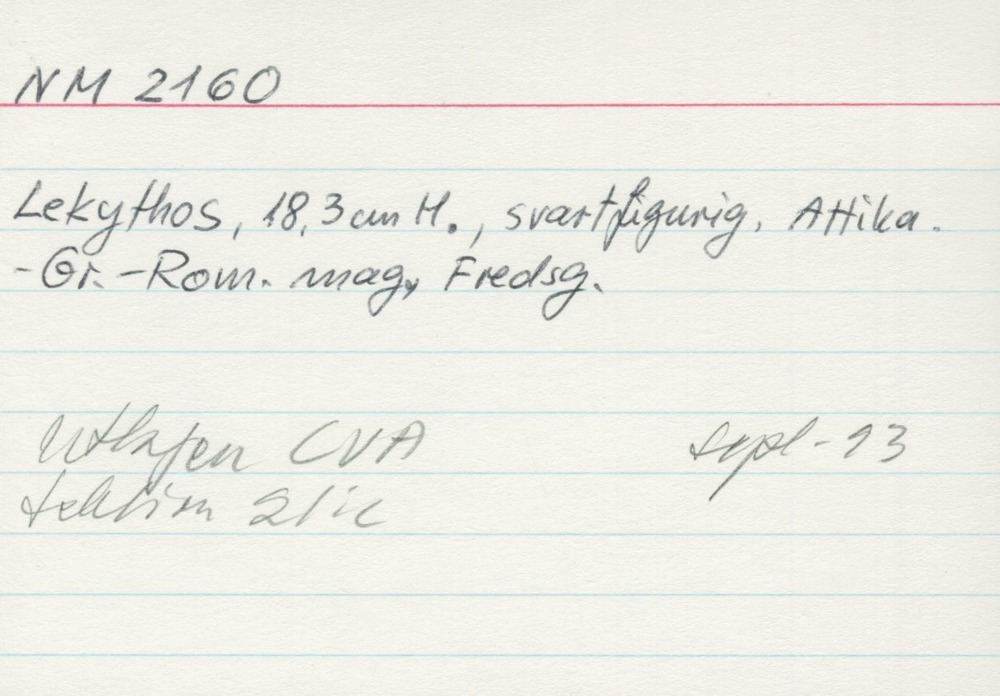 NM 2160
Lekythos, 18,3 cm H., svartfigurig. Attika.
- Gr.-Rom. mag, Fredsg.
CVA sept-93